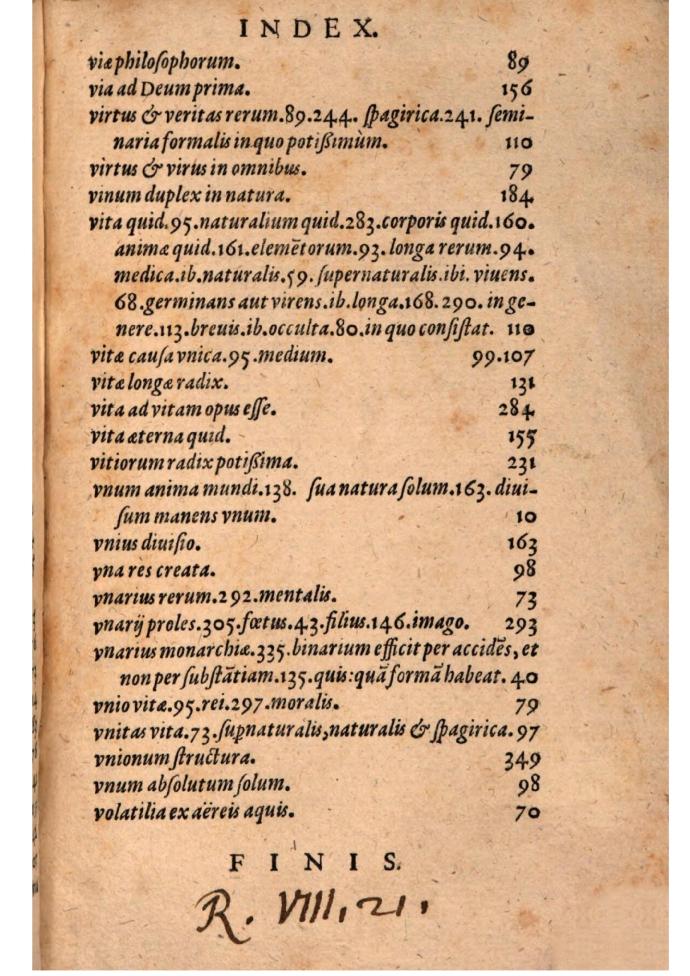 INDEX.
viæ philoſophorum. 89
via ad Deum prima. 156
virtus & veritas rerum.89.244. ſpagirica.241. ſemi-
naria formalis in quo potiſsimùm. 110
virtus & virus in omnibus. 79
vinum duplex in natura. 184
vita quid.95.naturalium quid.283.corporis quid.160.
animæ quid.161.elemētorum.93. longa rerum.94.
medica.ib.naturalis.59. ſupernaturalis.ibi. viuens.
68.germinans aut virens.ib.longa.168.290. in ge-
nere.113.breuis.ib.occulta.80.in quo conſiſtat. 110
vitæ cauſa vnica.95.medium. 99.107
vitæ longæ radix. 131
vita ad vitam opus eſſe. 284
vita æterna quid. 155
vitiorum radix potiſsima. 231
vnum anima mundi.138. ſua natura ſolum.163. diui-
ſum manens vnum. 10
vnius diuiſio. 163
vna res creata. 98
vnarius rerum.292.mentalis. 73
vnarij proles.305.fœtus.43.filius.146.imago. 293
vnarius monarchiæ.335.binarium efficit per accidēs, et
non per ſubſtātiam.135.quis:quā formā habeat. 40
vnio vitæ.95.rei.297.moralis. 79
vnitas vita.73.ſuꝑnaturalis,naturalis & ſpagirica. 97
vnionum ſtructura. 349
vnum abſolutum ſolum. 98
volatilia ex aëreis aquis. 70
FINIS.
R. VIII, 21,